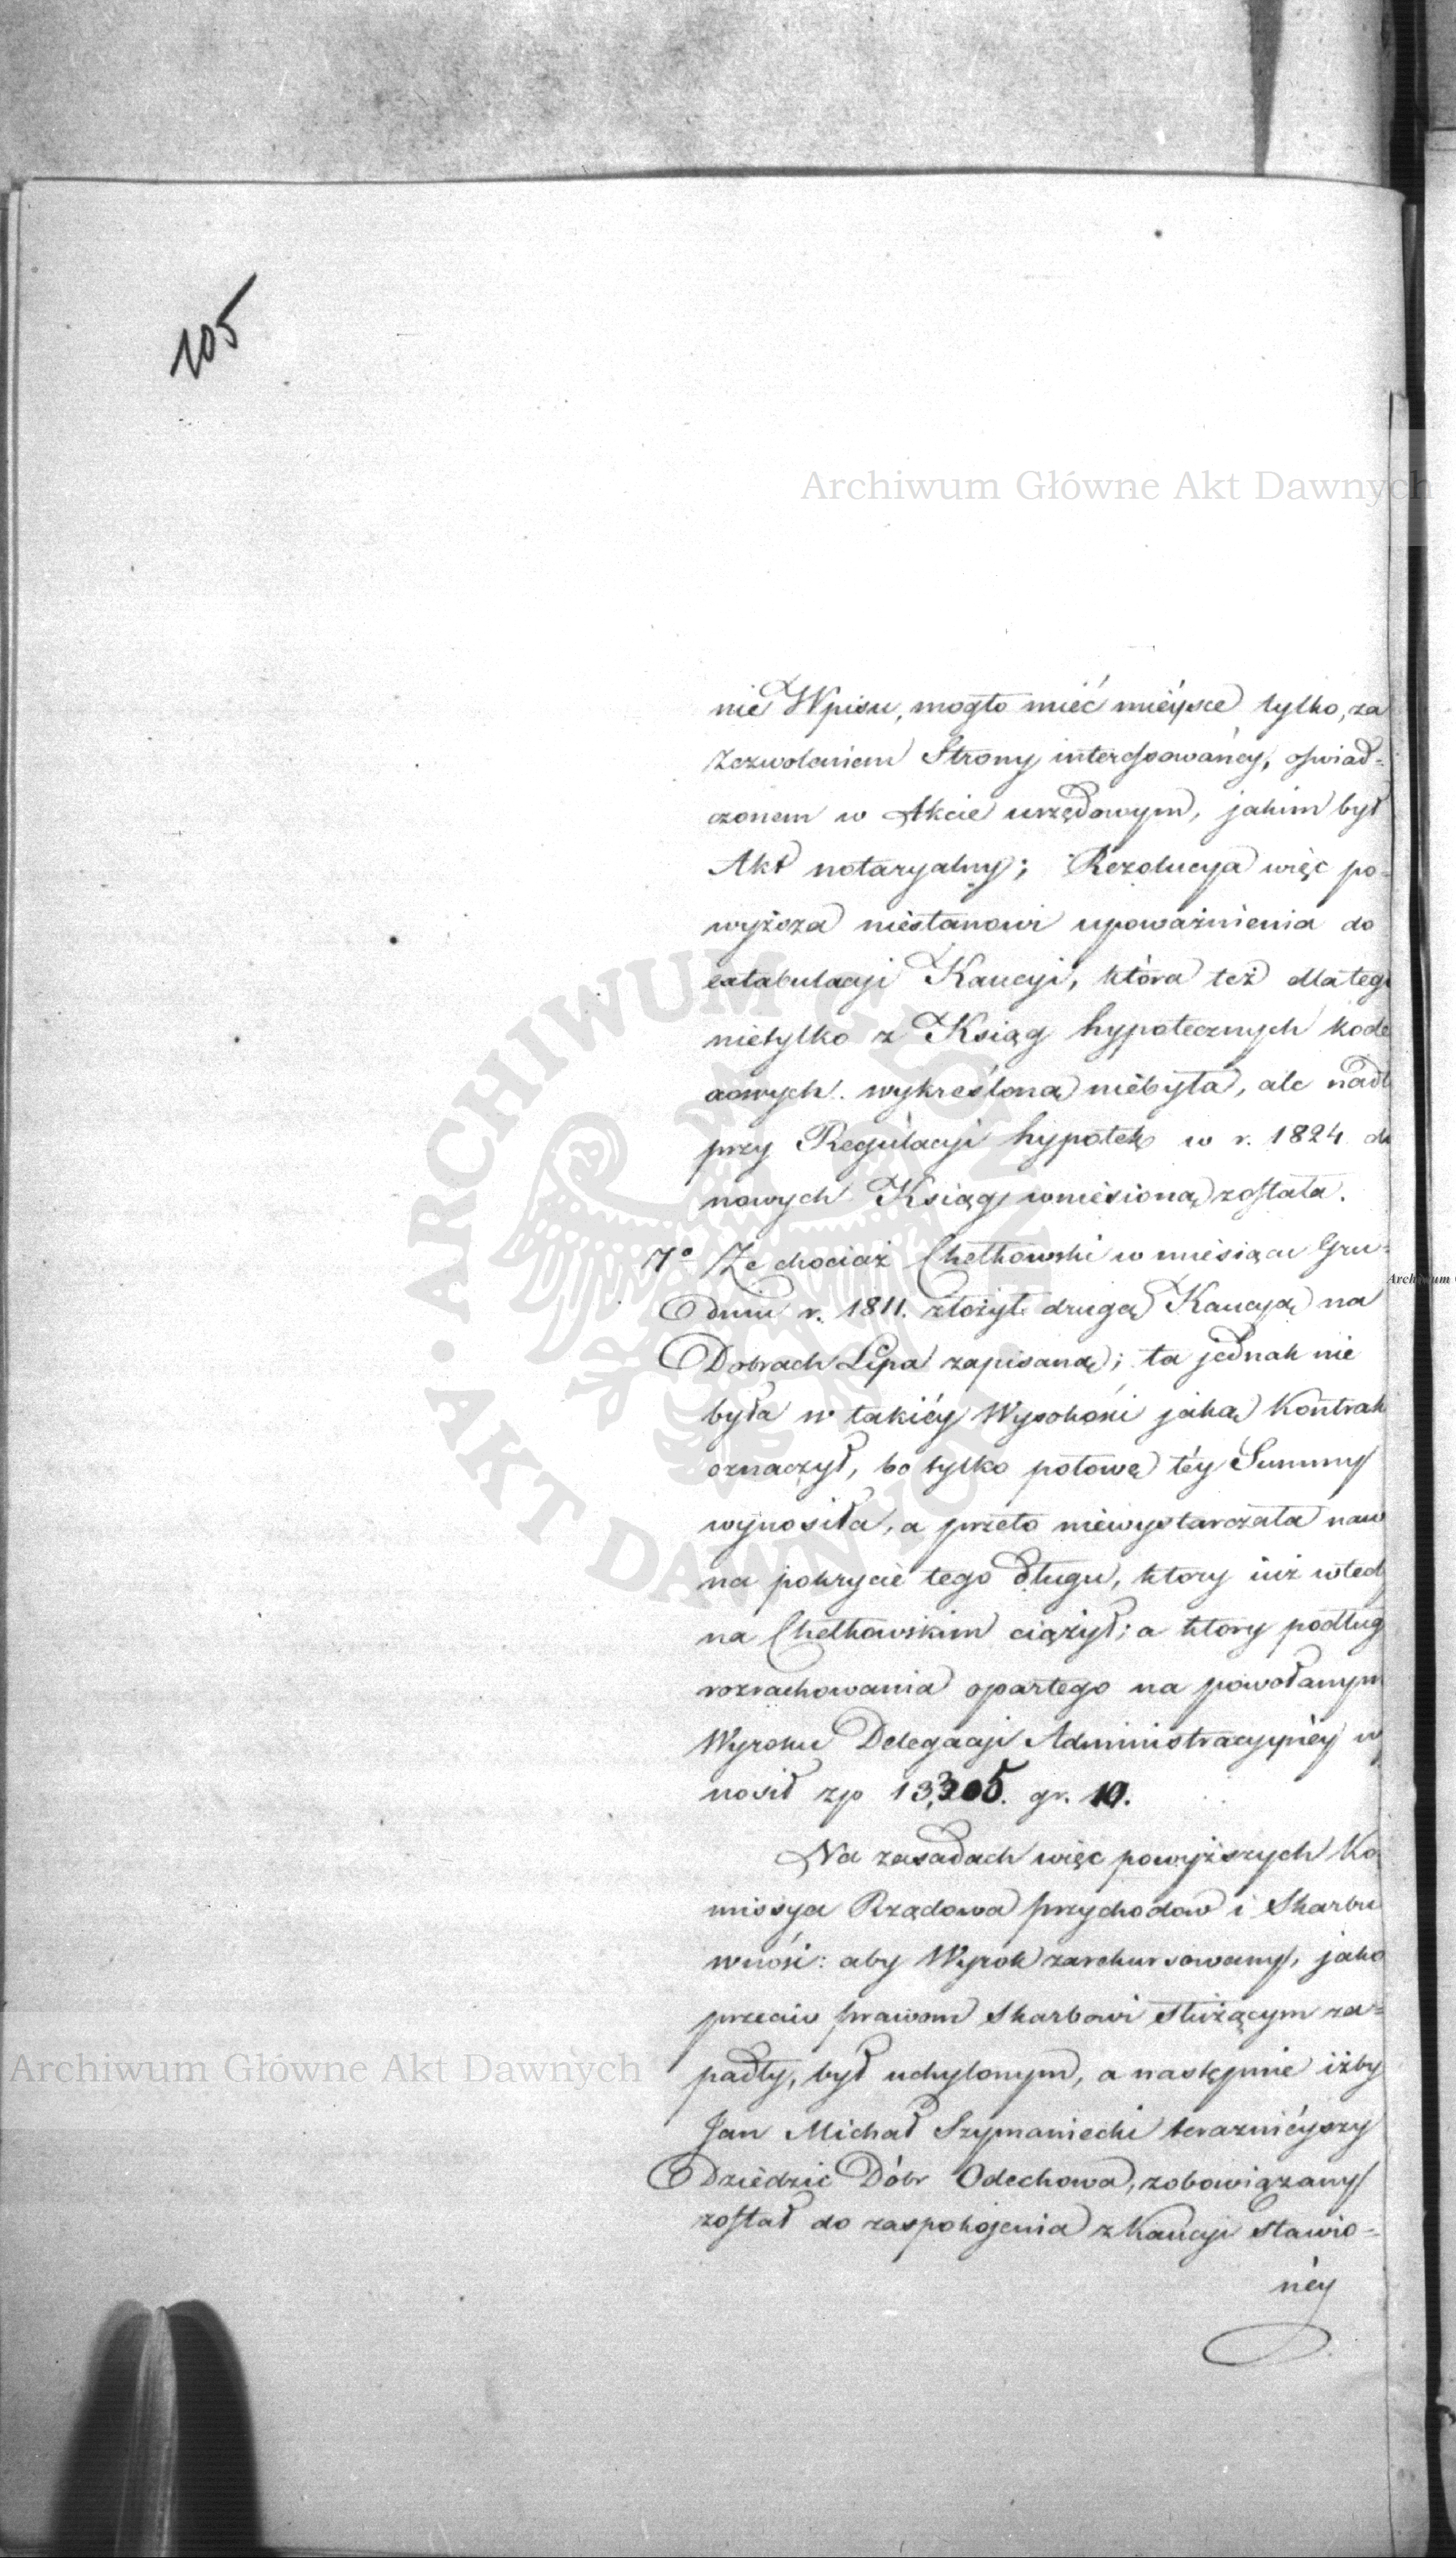 105
Archiwum Główne Akt Dawnych
nie Wpisu, mogło mieć miéysce tylko, za
Zezwoleniem Strony interessowanéy, oświad-
czonem w Akcie urzędowym, jakim był
Akt notaryalny; Rezolucya więc po-
wyższa niestanowi upoważnienia do
extabulacji Kaucyi, która też dla teg
nietylko z Ksiąg hypotecznych kode
xowych wykreśloną niebyła, ale nadt
przy Regulacji hypotek w r. 1824 do
nowych Ksiąg wniesioną została.
7° Że chociaż Chełkowski w miesiącu Gru-
dniu r. 1811. złożył drugą Kaucyą na
Dobrach Lipa zapisaną; ta jednak nie
była w takiéy Wysokości jaką Kontrak
oznaczył, bo tylko połowę téy Summy
wynosiła, a przeto niewystarczała naw
na pokrycie tego długu, który iuż wted
na Chełkowskim ciążył; a który podług
rozrachowania opartego na powołanym
Wyroku Delegacji Administracyjnéy wy
nosił zp 13,305. gr. 10.
Na zasadach więc powyższych Ko
missya Rządowa Przychodów i Skarbu
wnosi: aby Wyrok zarekursowany, jako
przeciw prawom Skarbowi służącym za-
padły, był uchylonym, a następnie iżby
Jan Michał Szymaniecki teraznieyszy
Dziedzic Dóbr Odechowa, zobowiązany
został do zaspokojenia z Kaucji stawio-
néy
Archiwum Główne Akt Dawnych
ARCHIWUM GŁÓWNE AKT DAWNYCH
Archiwum